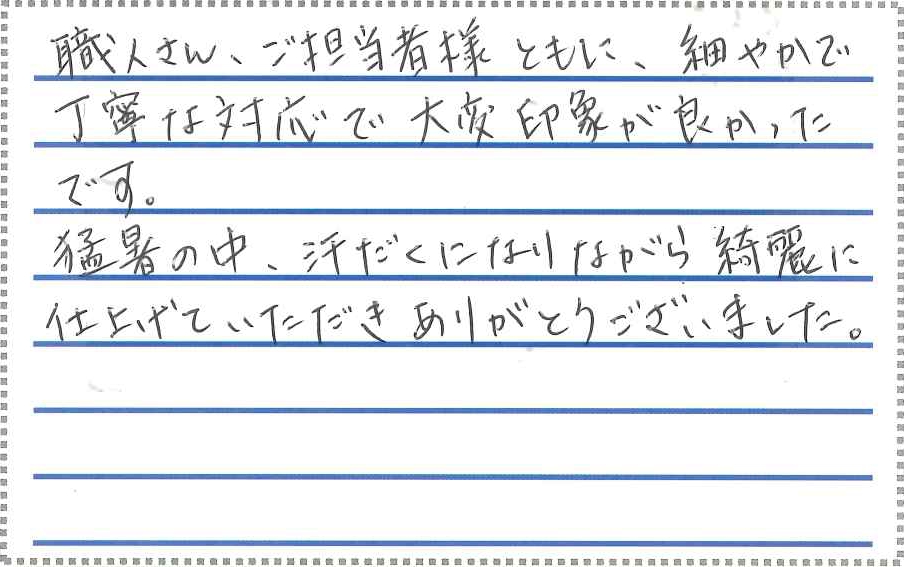 職人さん、ご担当者様ともに、細やかで
丁寧な対応で大変印象が良かった
です。
猛暑の中、汗だくになりながら綺麗に
仕上げていただきありがとうございました。